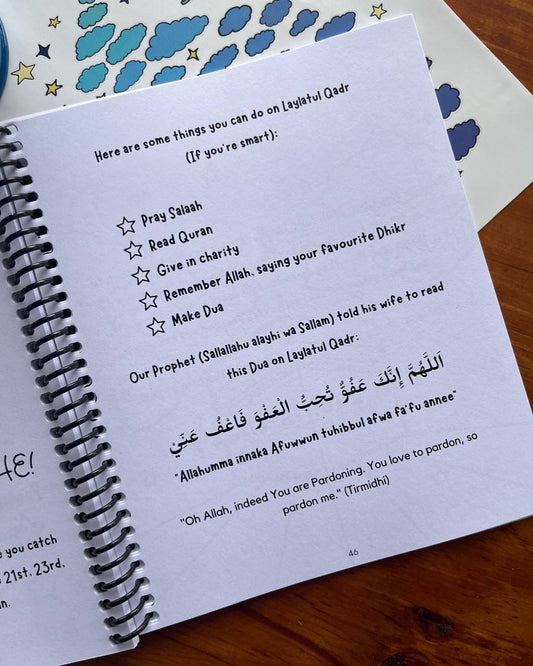 HE!
e you catch
21st, 23rd,
n.
Here are some things you can do on Laylatul Qadr
(If you're smart):
Pray Salaah
Read Quran
Give in charity
Remember Allah, saying your favourite Dhikr
Make Dua
Our Prophet (Sallallahu alayhi wa Sallam) told his wife to read
this Dua on Laylatul Qadr:
اَللَّهُمَّ إِنَّكَ عَفُوٌّ تُحِبُّ الْعَفْوَ فَاعْفُ عَنِّي
"Allahumma innaka Afuwwun tuhibbul afwa fa'fu annee"
"Oh Allah, indeed You are Pardoning. You love to pardon, so
pardon me." (Tirmidhi)
46